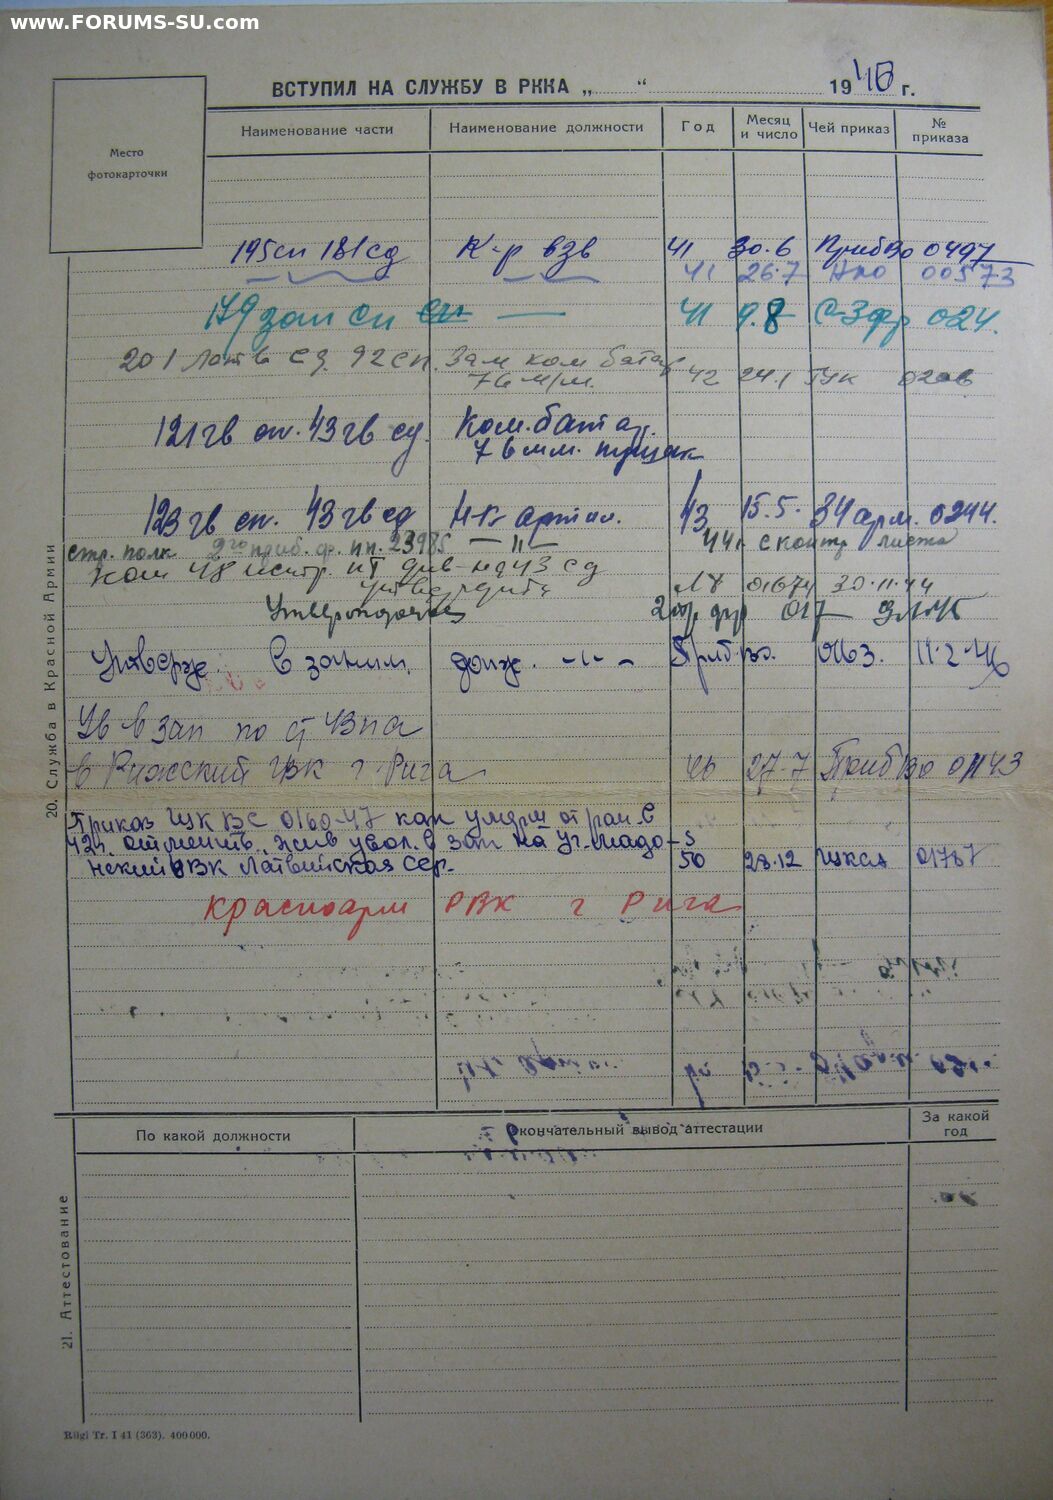 www.FORUMS-SU.com
ВСТУПИЛ НА СЛУЖБУ В РККА „ “ 1940 г.
Место фотокарточки
Наименование части Наименование должности Год Месяц и число Чей приказ № приказа
195 сп 181 сд К-р взв 41 30.6 ПрибВо 0497
41 26.7 00573
179 зап сп сп — 41 9.8 С-З фр 024.
201 Латв сд. 92 сп. Зам ком батар 42 24.1 ГУК
76 м/м.
121 гв сп. 43 гв сд. Ком. бат
76 мм. пушек
123 гв сп. 43 гв сд Н-к артил. 43 15.5. 34 арм. 0244.
стр. полк 2го приб. ф. пп. 23985 — " — 44г с контр листа
Ком 48 ист. ПТ див-на 43 сд 01674 30.11.44
017
Утверж. в заним. долж. -"- ПрибВо. 0163. 11.2.46
Ув в зап по ст 43 п а
в Рижский ГВК г. Рига 46 27.7 ПрибВо 01143
Приказ ГУК ВС 0160-47 как умерш от ран. в
42г. отменить, жив увол. в зап на уч. Мадо-
нский РВК Латвийская сср. 50 28.12 ГУКСА 01767
Красноарм РВК г Рига
20. Служба в Красной Армии
По какой должности Окончательный вывод аттестации За какой год
21. Аттестование
Rīgi Tr. I 41 (363). 400000.